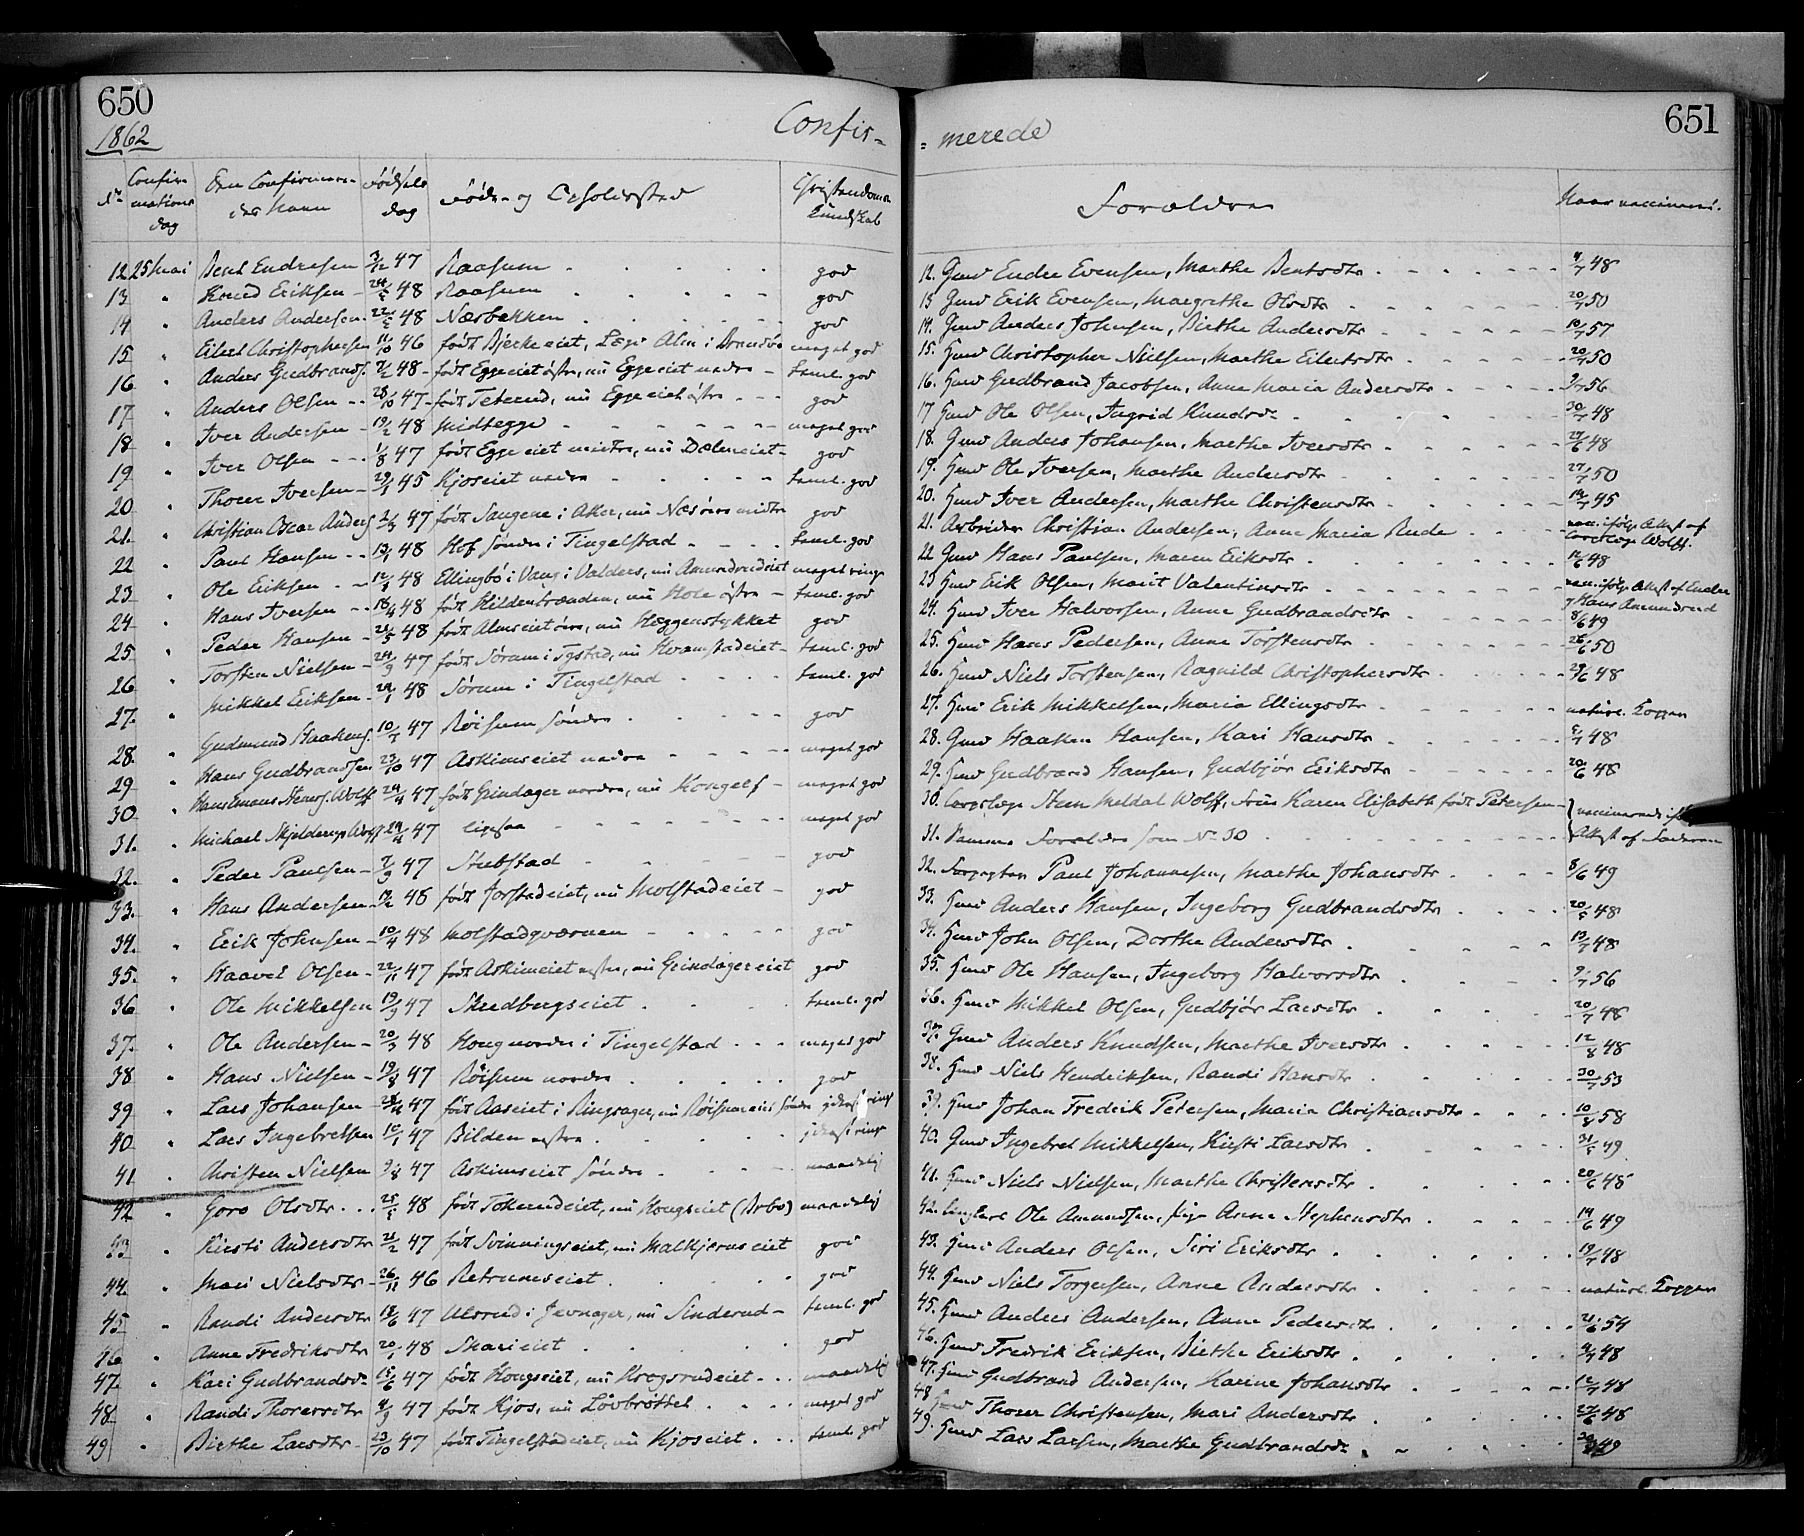 650
1862
Confir=
No Confirmations dag Den Confirmeredes Navn Fødsels dag Føde- og Opholdssted Christendoms Kundskab
12 25 Mai Bent Endresen 3/12 47 Raasum god
13 " Knud Eriksen 48 Raasum god
14 " Anders Andersen 48 Næsbakken god
15 " Eilert Christophersen 11/10 46 født Bjerkeeiet, meget god
16 " Anders Gudbrands. 48 født Eggeeiet østre, nu Eggeeiet nedre teml. god
17 " Anders Olsen 28/10 47 født Teterud, nu Eggeeiet østre god
18 " Iver Andersen 19/2 48 Midtegge meget god
19 " Iver Olsen 1/8 47 født Eggeeiet mintre, nu Dæleneiet god
20 " Thorer Iversen 45 Kjoseiet nedre teml. god
21. " Christian Oscar Anders. 47 født Saugene i Aker, nu Næs øvre midtre god
22 " Paul Hansen 48 Hof søndre i Tingelstad teml. god
23 " Ole Eriksen 48 Ellingbø i Vang i Valders, nu Amundrudeiet meget ringe
24 " Hans Iversen 18/4 48 født Hildenbrænden, nu Hole østre teml. god
25 " Peder Hansen 48 født Almseiet øvre, nu Heggenstykket god
26 " Torsten Nielsen 24/9 47 født Sørum i Tystad, nu Kvamstadeiet teml. god
27. " Mikkel Eriksen 48 Sørum i Tingelstad teml. god
28. " Gudmund Haakens. 10/7 47 Røisum søndre god
29 " Hans Gudbrandsen 23/10 47 Askimseiet nedre meget god
30 " Hans Emans Steners. Wolff 24/4 47 født Grindager nordre, nu Kongelf meget god
31. " Michael Skjelderup Wolff 24/4 47 ligesaa meget god
32. " Peder Paulsen 7/9 47 Stubstad god
33. " Hans Andersen 48 født Jorstadeiet, nu Molstadeiet god
34. " Erik Johnsen 10/4 48 Molstadqværnen god
35. " Haavel Olsen 22/11 47 født Askimeiet vestre, nu Grindagereiet god
36 " Ole Mikkelsen 19/9 47 Skudbergseiet teml. god
37. " Ole Andersen 20/3 48 Houg nordre i Tingelstad meget god
38 " Hans Nielsen 19/8 47 Røisum nordre god
39 " Lars Johansen 47 født Aaseiet i Ringsager, nu Røisumeiet søndre yderst ringe
40 " Lars Ingebretsen 10/1 47 Bilden vestre yderst ringe
41 " Christen Nielsen 9/8 47 Askimseiet søndre maadelig
42 " Goro Olsdtr 48 født Tokerudeiet, nu Hougseiet (Arbo) maadelig
43 " Kirsti Andersdtr 21/2 47 født Svinningseiet, nu Malkjernseiet god
44. " Mari Nielsdtr 26/11 46 Retrumseiet god
45 " Randi Andersdtr 18/6 47 Ulsrud i Jevnager, nu Sinderud teml. god
46 " Anne Fredriksdtr 20/1 48 Skarieiet god
47. " Kari Gudbrandsd. 47 født Hougseiet, nu Krogsrudeiet maadelig
48 " Randi Thorersdtr 4/9 47 født Kjos, nu Løvbrøttet meget god
49 " Birthe Larsdtr 23/10 47 født Tingelstadeiet, nu Kjoseiet teml. god
651
= merede
Forældre Naar vaccineret.
12. Gmd Endre Evensen, Marthe Bentsdtr 4/7 48
13 Gmd Erik Evensen, Margrethe Olsdtr 20/7 50
14. Gmd Anders Johnsen, Birthe Andersdtr 10/7 57
15. Hmd Christopher Nielsen, Marthe Eilertsdtr 20/7 50
16. Hmd Gudbrand Jacobsen, Anne Maria Andersdtr 9/7 56
17 Hmd Ole Olsen, Ingrid Knudsdr 30/7 48
18. Gmd Anders Johansen, Marthe Iversdtr 48
19. Hmd Ole Iversen, Marthe Andersdtr 27/7 50
20. Hmd Iver Andersen, Marthe Christensdtr 45
21. Arbeider Christian Andersen, Anne Maria Rude vacc. ifølge Attest af Corpslæge Wolff.
22 Gmd Hans Paulsen, Maren Eriksdtr 12/6 48
23 Hmd Erik Olsen, Marit Valentinsdtr vacc. ifølge Attest af
24. Hmd Iver Halvorsen, Anne Gudbrandsdtr Hans Amundrud 8/6 49
25. Hmd Hans Pedersen, Anne Torstensdtr 50
26. Hmd Niels Torstensen, Ragnild Christophersdtr 48
27. Hmd Erik Mikkelsen, Maria Ellingsdtr naturl. Kopper
28. Gmd Haaken Hansen, Kari Hansdtr 48
29. Hmd Gudbrand Hansen, Gudbjør Eriksdtr 20/6 48
30. Corpslæge Steen Meldal Wolff, Frue Karen Elisabeth født Petersen vaccinerede ifølge
31. Samme Forældre som No 30 Attest af Faderen
32. Forpagter Paul Johannesen, Marthe Johansdtr 8/6 49
33. Hmd Anders Hansen, Ingeborg Gudbrandsdtr 20/5 48
34. Hmd John Olsen, Dorthe Andersdtr 13/7 48
35. Hmd Ole Hansen, Ingeborg Halvorsdtr 9/7 56
36. Hmd Mikkel Olsen, Gudbjør Larsdtr 20/7 48
37. Gmd Anders Knudsen, Marthe Iversdtr 12/8 48
38. Hmd Niels Hendriksen, Randi Hansdtr 30/7 53
39. Hmd Johan Fredrik Petersen, Maria Christiansdtr 10/8 58
40. Gmd Ingebret Mikkelsen, Kirsti Larsdtr 31/5 49
41. Hmd Niels Nielsen, Marthe Christensdtr 20/6 48
42. Ungkarl Ole Amundsen, Pige Anne Stephensdtr 14/6 49
43. Hmd Anders Olsen, Siri Eriksdtr 19/7 48
44. Hmd Niels Torgersen, Anne Andersdtr naturl. Kopper
45. Hmd Anders Andersen, Anne Pedersdtr 21/6 54
46. Hmd Fredrik Eriksen, Birthe Eriksdtr 48
47. Hmd Gudbrand Andersen, Karine Johansdtr 12/7 48
48 Gmd Thorer Christensen, Mari Andersdtr 27/6 48
49. Hmd Lars Larsen, Marthe Gudbrandsdr 49